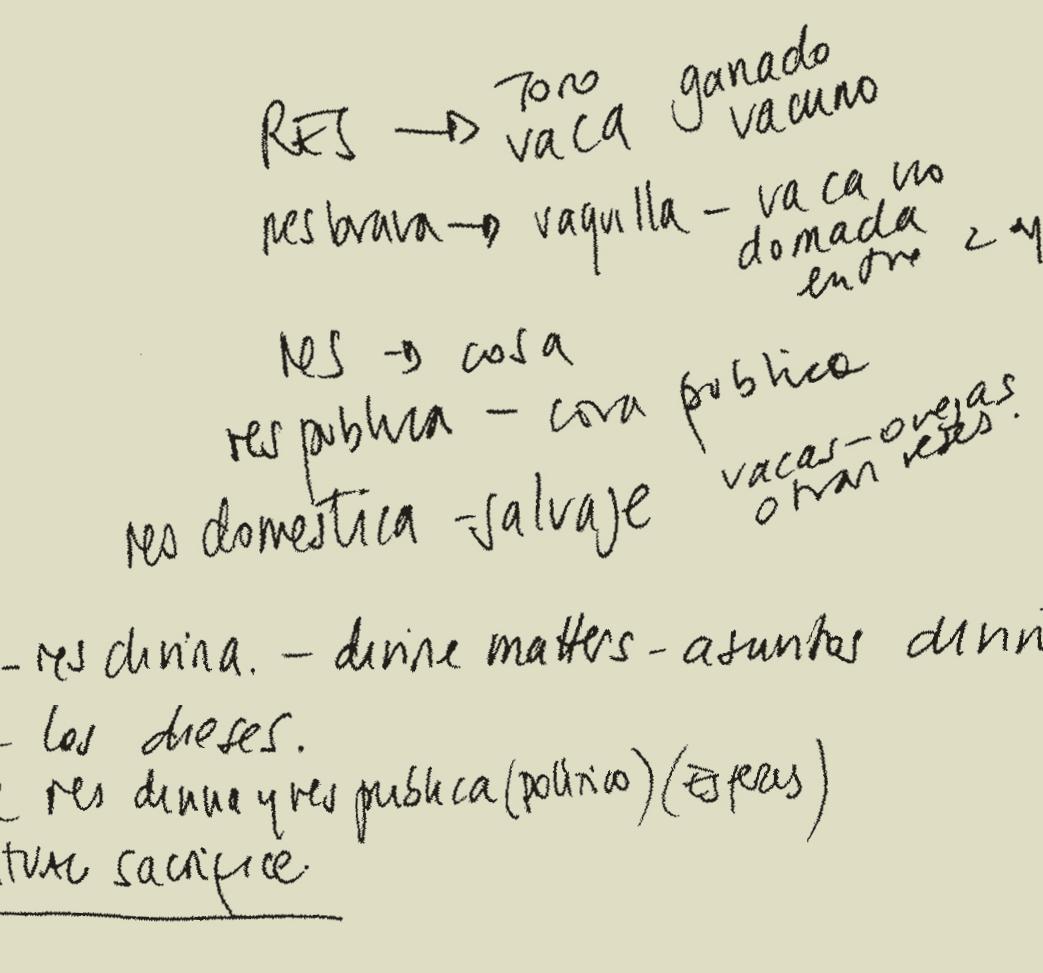 Toro ganado
RES → vaca vacuno
res brava → vaquilla - vaca no
domada
entre 2 y
res → cosa
res publica - cosa publica
vacas - ovejas
otras reses.
res domestica - salvaje
- res divina. - divine matters - asuntos divin
- los dioses.
res divina y res publica (político) (Esferas)
sacrifice